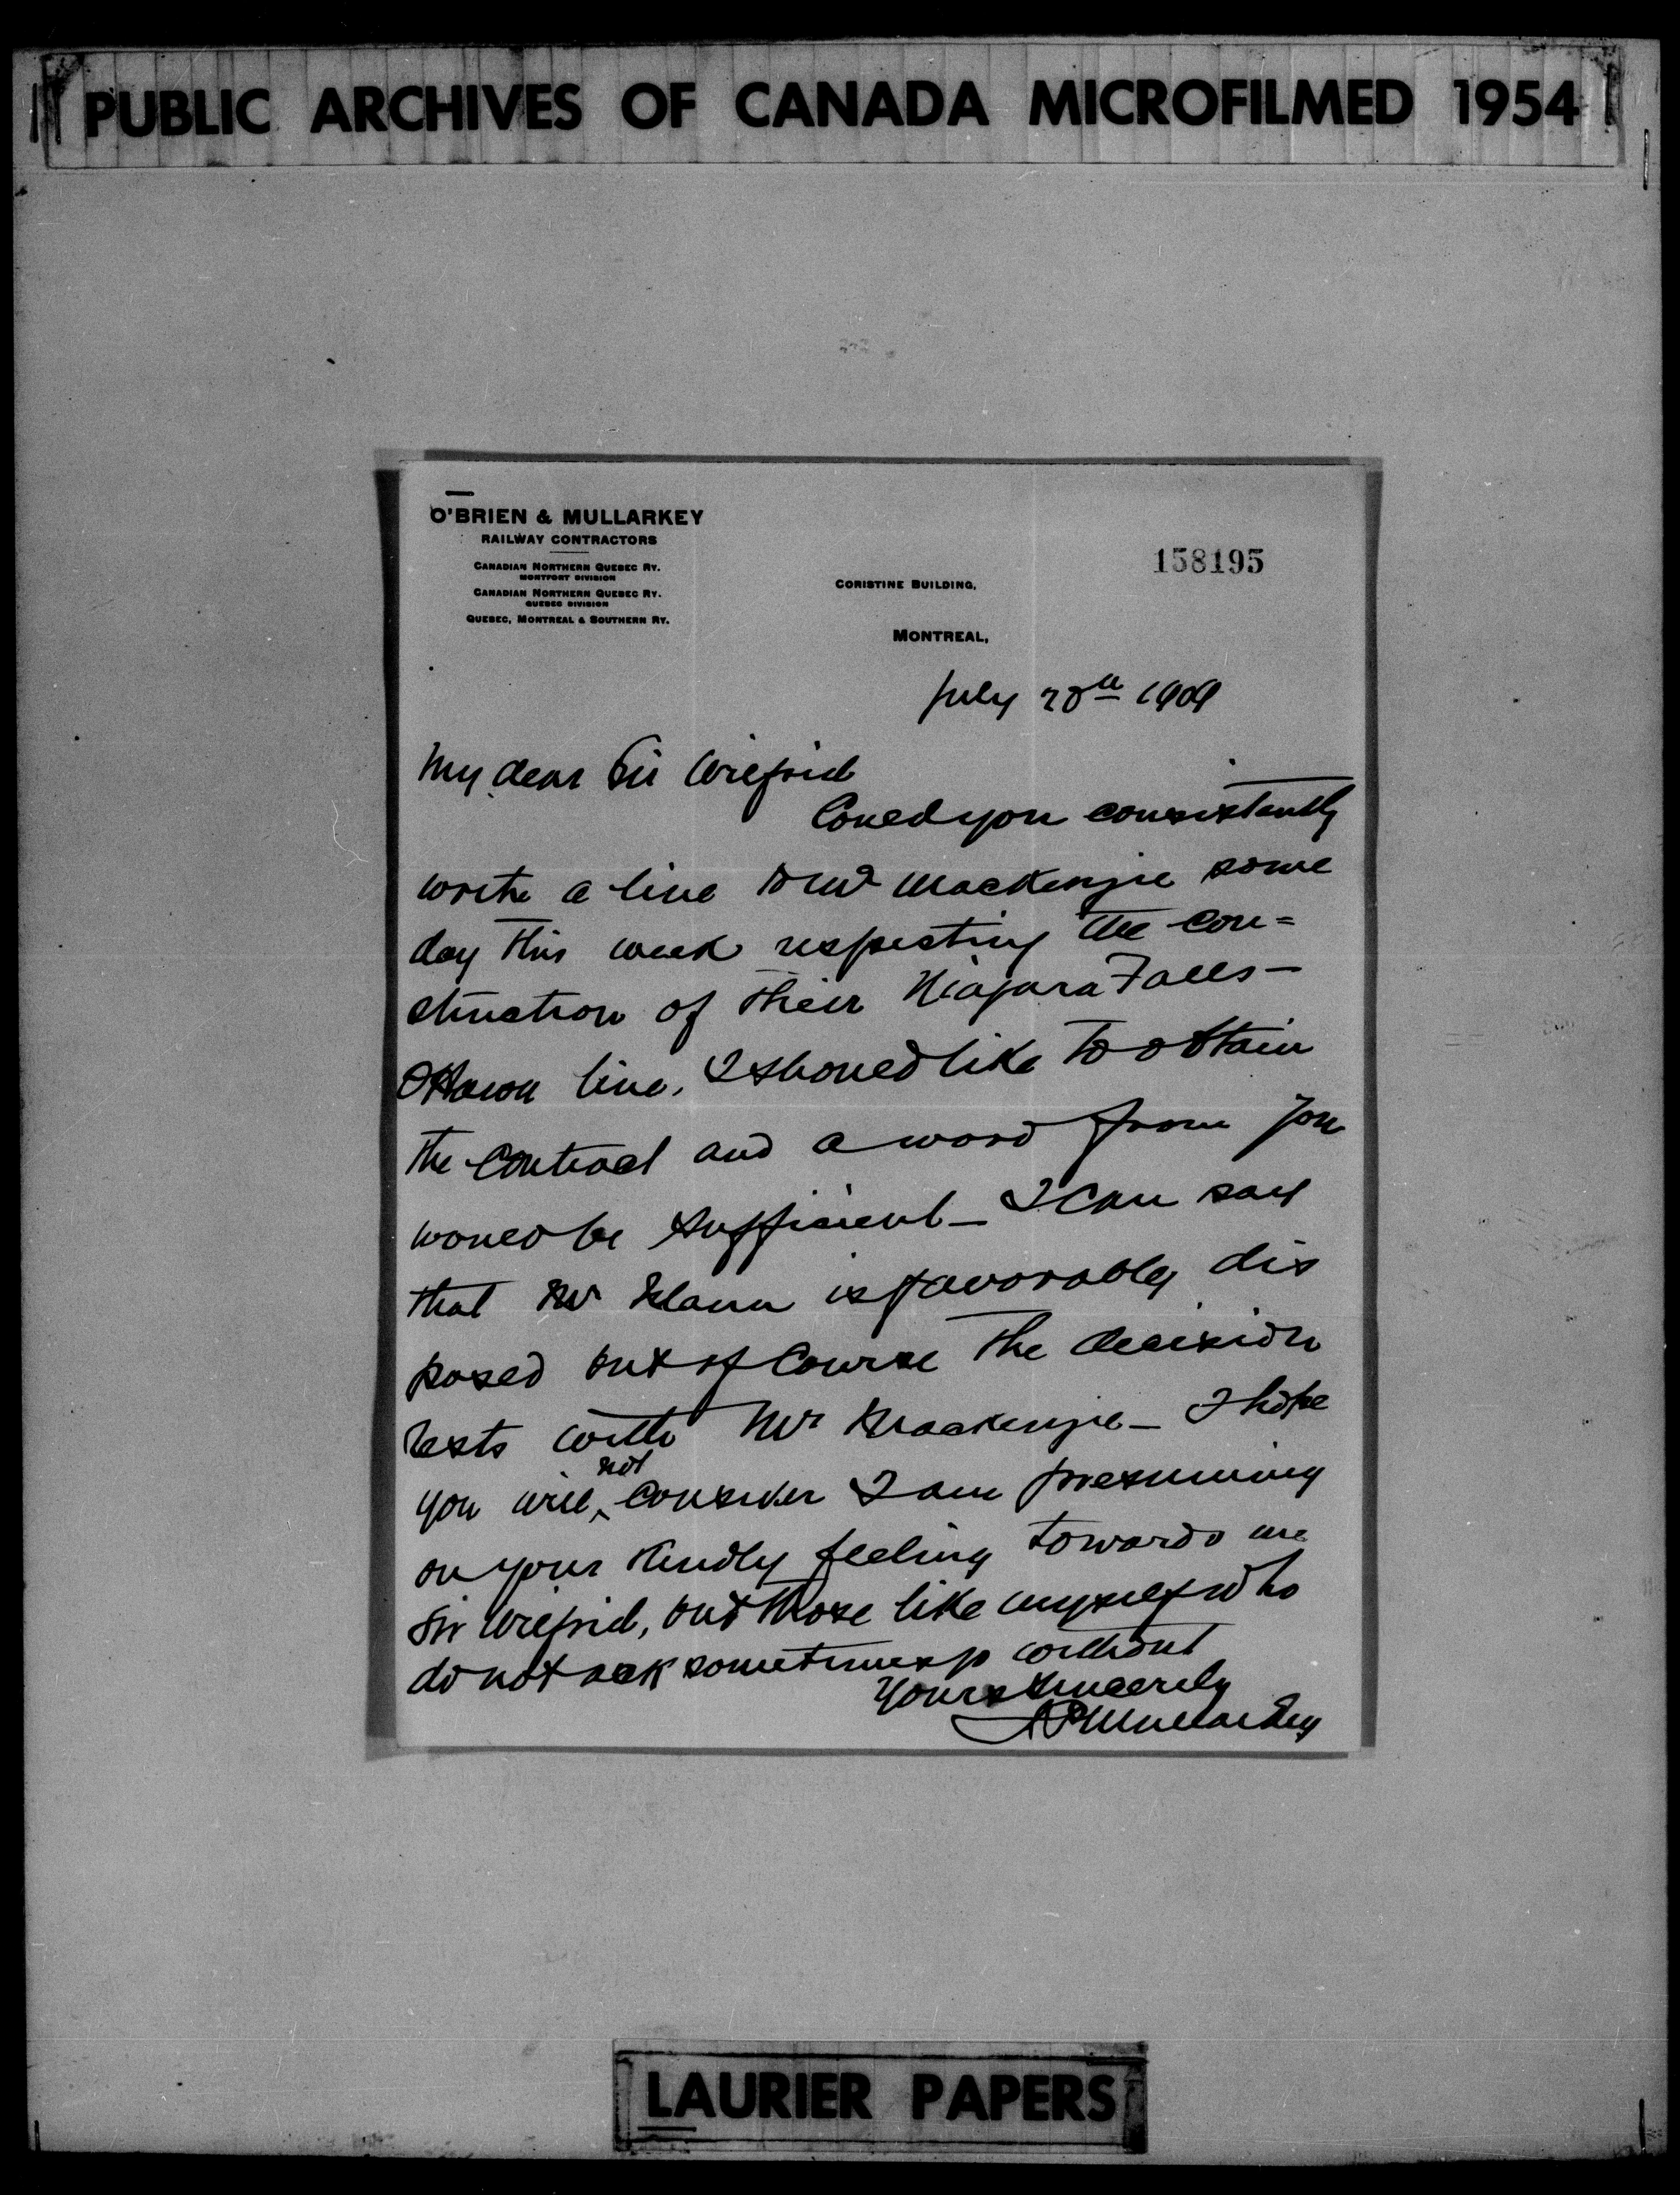 PUBLIC ARCHIVES OF CANADA MICROFILMED 1954
O'BRIEN & MULLARKEY
RAILWAY CONTRACTORS
CANADIAN NORTHERN QUEBEC RY.
MONTFORT DIVISION
CANADIAN NORTHERN QUEBEC RY.
QUEBEC DIVISION
QUEBEC, MONTREAL & SOUTHERN RY.
158195
CORISTINE BUILDING,
MONTREAL,
July 20th 1909
My dear Sir Wilfrid
Could you consistantly
write a line to Mr Mackenzie some
day this week respecting the con=
struction of their Niagara Falls-
Ottawa line, I should like to obtain
the contract and a word from you
would be sufficient - I can say
that Mr Mann is favorably dis
posed but of course the decision
rests with Mr Mackenzie - I hope
you will not consider I am presuming
on your kindly feeling towards me
Sir Wilfrid, but those like myself who
do not ask sometimes go without
Yours sincerely
Mullarkey
LAURIER PAPERS